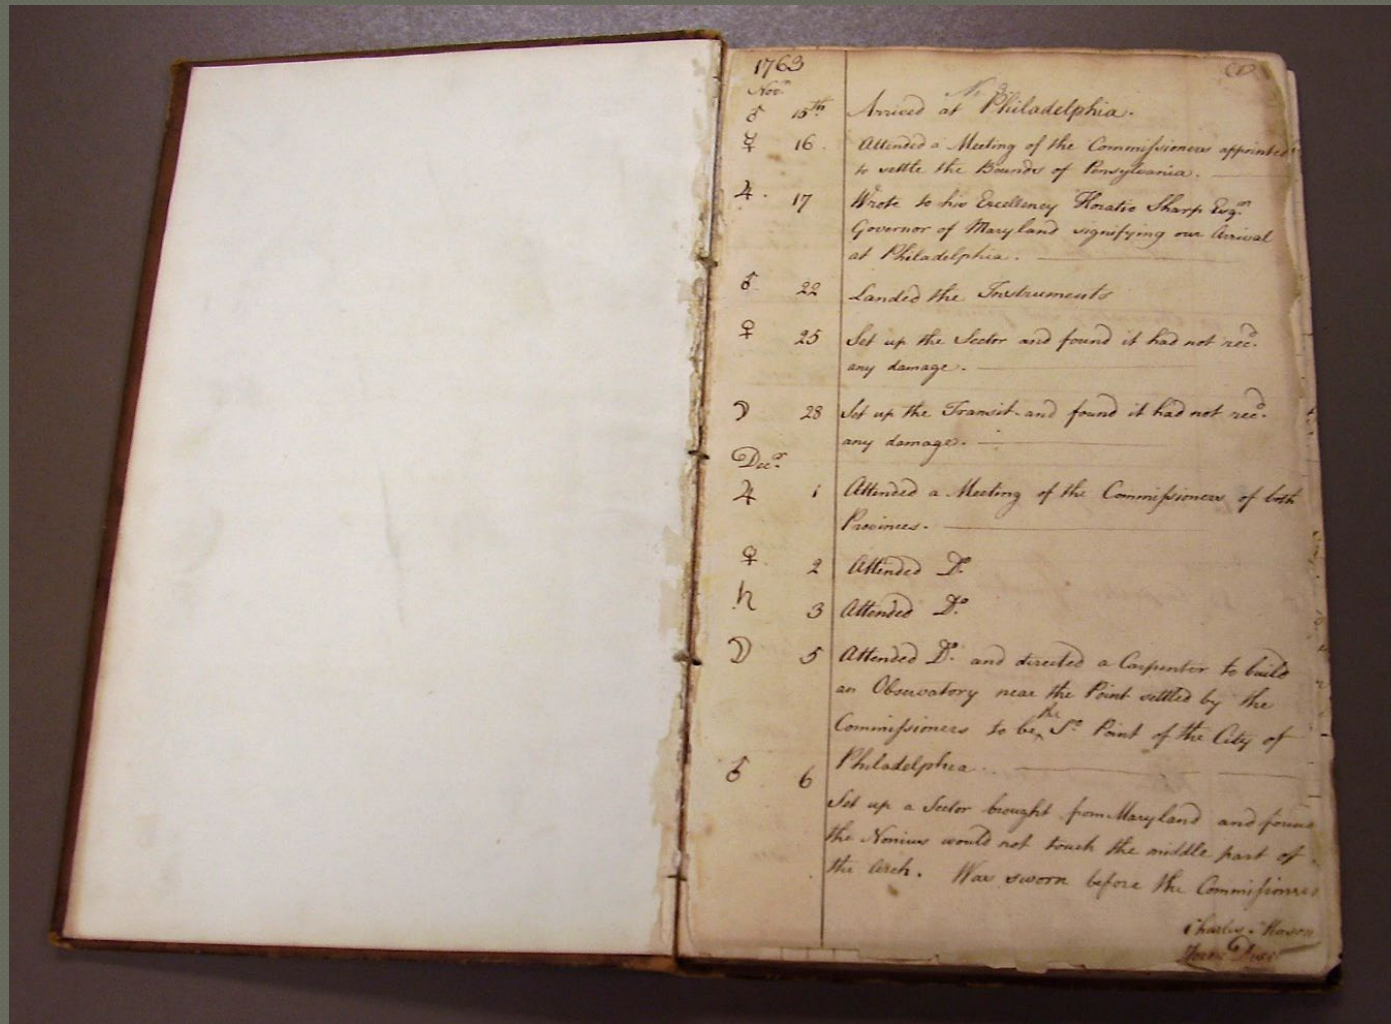 1763
Nov.r
♂ 15th Arrived at Philadelphia.
☿ 16. Attended a Meeting of the Commissioners appointed
to settle the Bounds of Pensylvania.
♃. 17 Wrote to his Excellency Horatio Sharp Esq.r
Governor of Maryland signifying our Arrival
at Philadelphia.
♂. 22 Landed the Instruments
♀ 25 Set up the Sector and found it had not rec.d
any damage.
☽ 28 Set up the Transit and found it had not rec.d
any damage.
Dec.r
♃ 1 Attended a Meeting of the Commissioners of both
Provinces.
♀ 2 Attended D.o
♄ 3 Attended D.o
☽ 5 Attended D.o and directed a Carpenter to build
an Observatory near the Point settled by the
Commissioners to be the S.o Point of the City of
Philadelphia.
♂ 6 Set up a Sector brought from Maryland and found
the Nonius would not touch the middle part of
the Arch. Was sworn before the Commissioners
Charles Mason